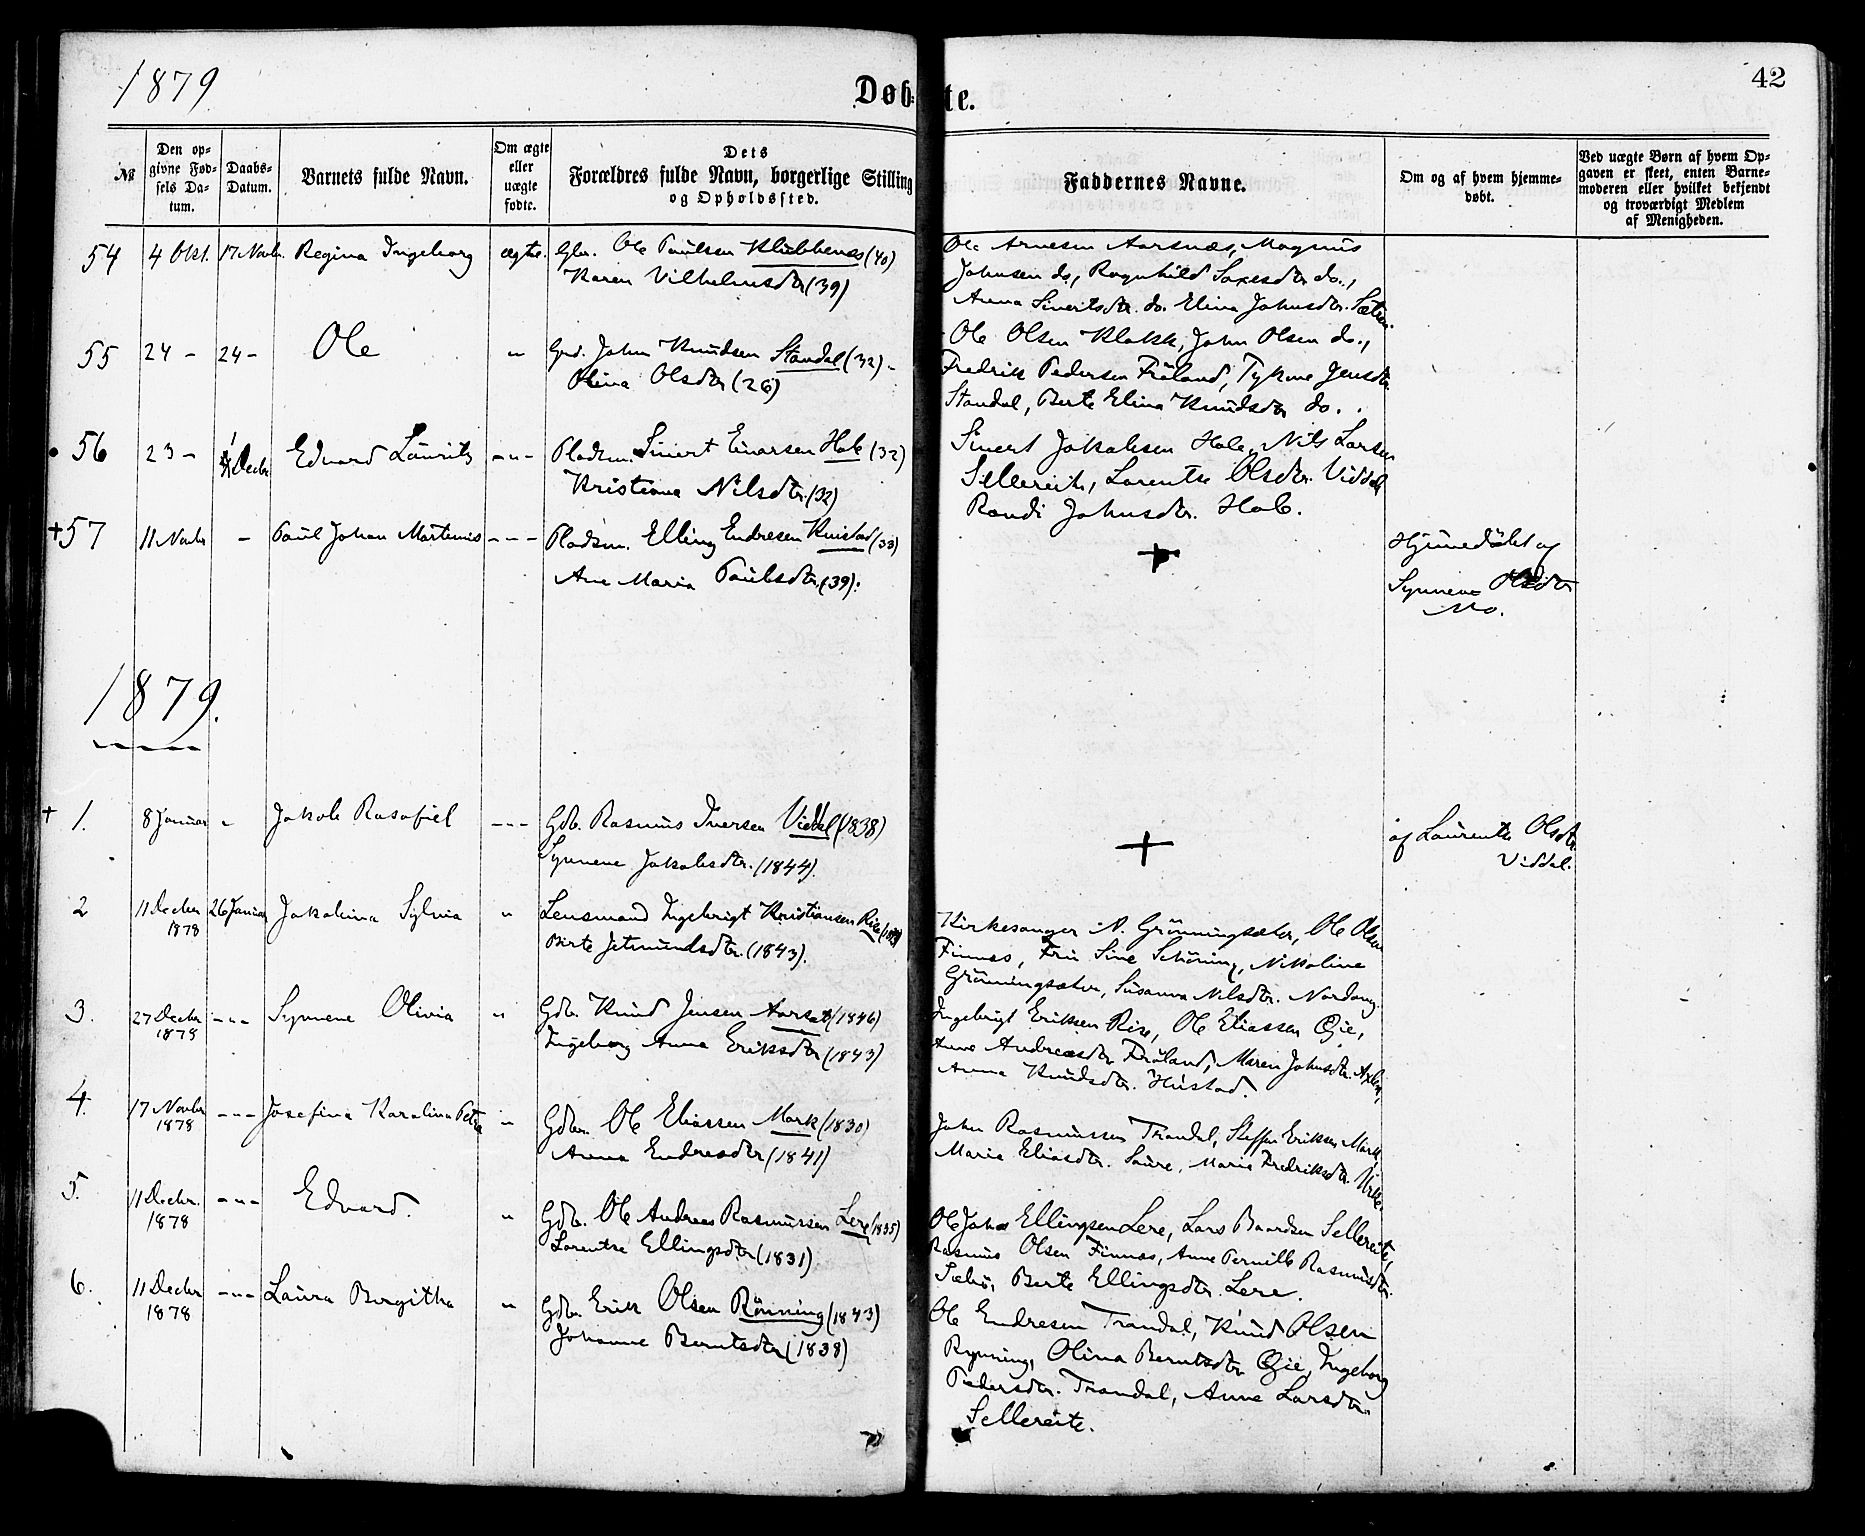 1879
Døb-te.
42
№
Den opgivne Fødsels Datum.
Daabs-Datum.
Barnets fulde Navn.
Om ægte eller uægte fødte.
Dets Forældres fulde Navn, borgerlige Stilling og Opholdssted.
Faddernes Navne.
Om og af hvem hjemmedøbt.
Ved uægte Børn af hvem Opgaven er skeet, enten Barnemoderen eller hvilket bekjendt og troværdigt Medlem af Menigheden.
54 4 Okt. 17 Novbr. Regina Ingeborg ægte. Gbr. Ole Paulsen Klubbenes (40)
Karen Vilhelmsdtr (39)
Ole Arnesen Aarsnæs, Magnus
Johnsen do, Ragnhild Saxesdtr do.,
Anna Sivertsdtr. do. Elina Johnsdtr. Sætre
55 24 - 24 - Ole " Grd. John Knudsen Standal (32) -
Olina Olsdtr (26)
Ole Olsen Klokk, John Olsen do.,
Fredrik Pedersen Frøland, Jensdtr
Standal, Berte Elina Knudsdtr do.
56 23 - 1 Decbr Edvard Laurits - " - Pladsm. Sivert Einarsen Hole (32)
Kristiane Nilsdtr. (32)
Sivert Jakobsen Hole, Nils Larsen
Sellereite, Lorentse Olsdtr. Viddal
Randi Johnsdtr. Hole.
+57 11 Novbr - Paul Johan Martinus - - - Pladsm. Elling Endresen Knistad (33)
Ane Maria Paulsdtr. (39).
+
Hjemmedøbt af
Synneve Olsdtr
Mo.
1879.
+ 1. 8 Januar - Jakob Rasafiel - - - Gdb. Rasmus Iversen Viddal (1838)
Synneve Jakobsdtr. (1844).
+
af Laurentse Olsdtr.
Viddal.
2 11 Decbr 1878 26 Januar Jakobina Sylvia " Lensmand Ingebrigt Kristiansen Rise
Birte Jetmundsdtr. (1843).
Kirkesanger N. Grønningsæter, Ole Olsen
Finnes, Fru Sine Schøning, Nikoline
Grønningsæter, Susanna Nilsdtr. Nordang.
3. 27 Decbr 1878 - " - Synneve Olivia " Gdb. Knud Jensen Aarset (1846)
Ingeborg Anna Eriksdtr (1843)
Ingebrigt Eriksen Rise, Ole Eliassen Øie,
Anne Andreasdtr Frøland, Maren Johnsdtr.
Anna Knudsdtr. Hustad.
4. 17 Novbr 1878 - " - Josefina Karolina Petra " Gdbr. Ole Eliassen Mork (1830)
Anna Endresdtr (1841)
John Rasmussen Trandal, Steffen Eriksen Mork,
Maria Eliasdtr. Saure, Marie Fredriksdtr. Urke.
5. 11 Decbr. 1878 - " - Edvard. " Gdb. Ole Andreas Rasmussen Lere (1835)
Lorentse Ellingsdtr (1831)
Ole Johan Ellingsen Lere, Lars Baardsen Sellereite,
Rasmus Olsen Finnes, Anne Pernille Rasmusdtr.
Sæbø, Berte Ellingsdtr. Lere.
6. 11 Decbr 1878 - " - Laura Birgitha " Gdb. Erik Olsen Rønning (1843)
Johanne Berntsdtr (1838)
Ole Endresen Trandal, Knud Olsen
Rynning, Olina Berntsdtr Øie, Ingeborg
Pedersdtr. Trandal, Anne Larsdtr.
Sellereite.